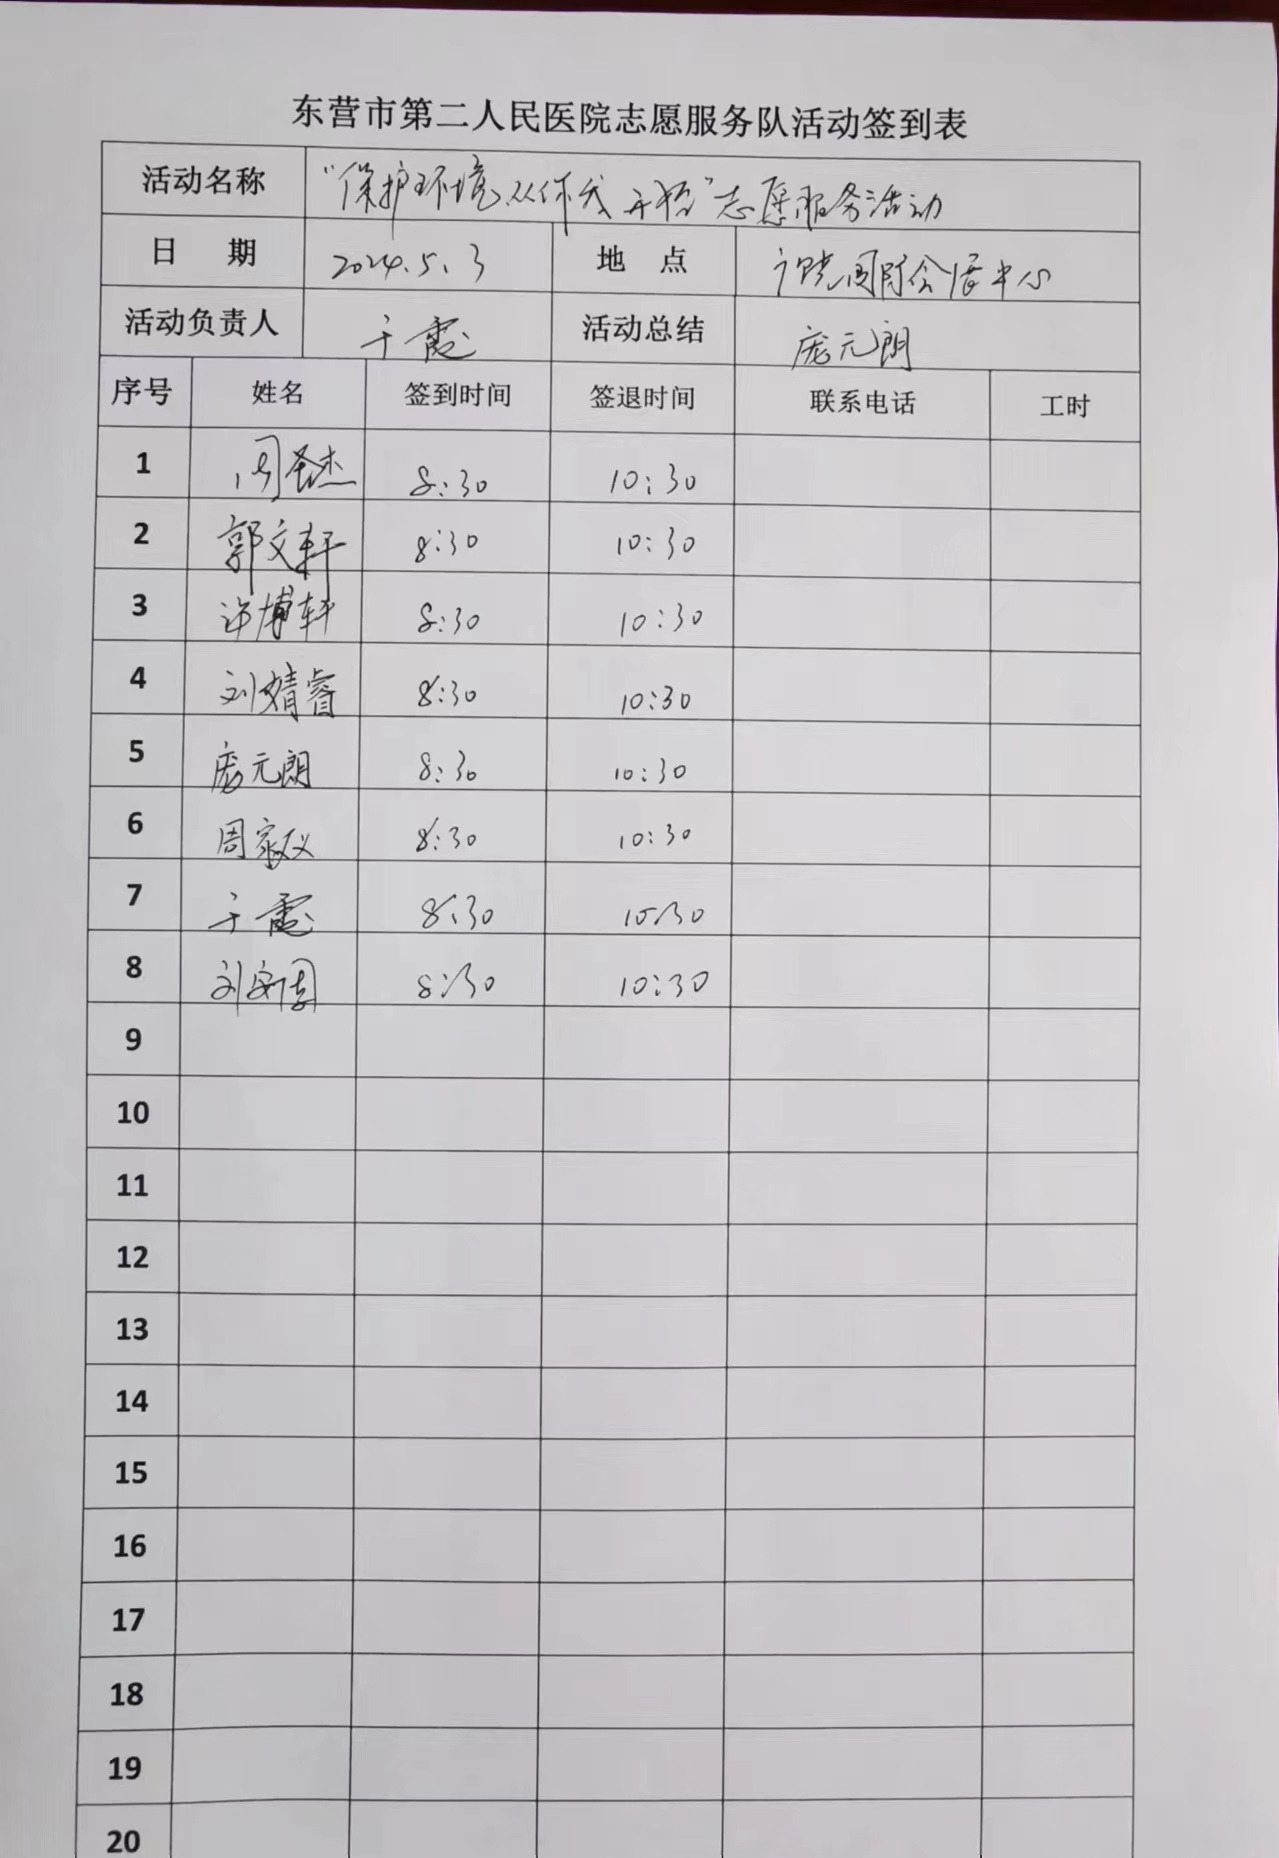 东营市第二人民医院志愿服务队活动签到表
活动名称 “保护环境从你我开始”志愿服务活动
日 期 2024.5.3 地 点 广饶国际会展中心
活动负责人 于霞 活动总结 庞元朗
序号 姓名 签到时间 签退时间 联系电话 工时
1 周圣杰 8:30 10:30
2 郭文轩 8:30 10:30
3 许博轩 8:30 10:30
4 刘婧睿 8:30 10:30
5 庞元朗 8:30 10:30
6 周家仪 8:30 10:30
7 于霞 8:30 10:30
8 8:30 10:30
9
10
11
12
13
14
15
16
17
18
19
20